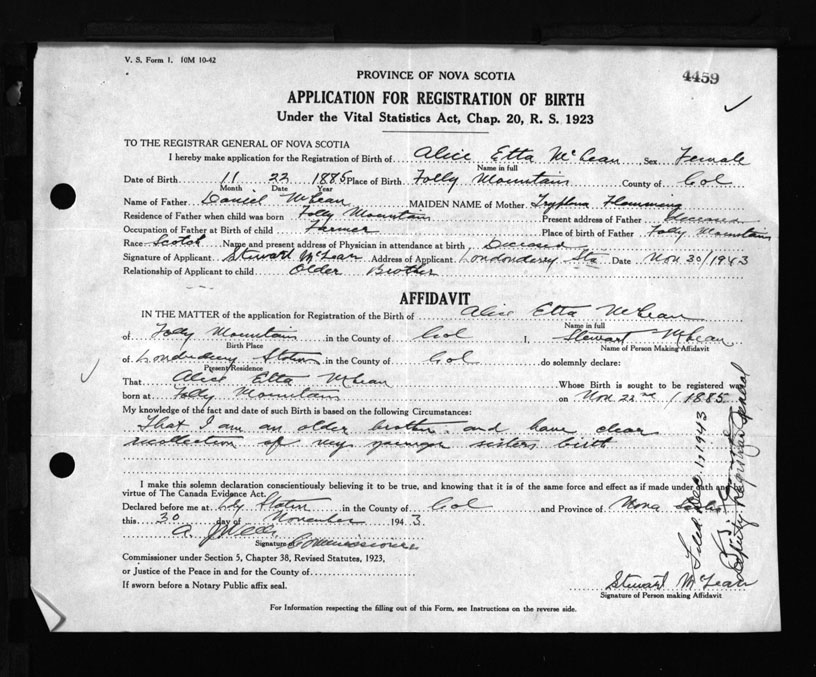 V. S. Form 1. 10M 10-42
PROVINCE OF NOVA SCOTIA
4459
APPLICATION FOR REGISTRATION OF BIRTH
Under the Vital Statistics Act, Chap. 20, R. S. 1923
TO THE REGISTRAR GENERAL OF NOVA SCOTIA
I hereby make application for the Registration of Birth of Alice Etta McLean Sex Female
Name in full
Date of Birth 11 22 1885 Place of Birth Folly Mountain County of Col
Month Date Year
Name of Father Daniel McLean MAIDEN NAME of Mother Tryphena Flemming
Residence of Father when child was born Folly Mountain Present address of Father Deceased
Occupation of Father at Birth of child Farmer Place of birth of Father Folly Mountain
Race Scotch Name and present address of Physician in attendance at birth Deceased
Signature of Applicant Stewart McLean Address of Applicant Londonderry Sta Date Nov 30/1943
Relationship of Applicant to child Older Brother
AFFIDAVIT
IN THE MATTER of the application for Registration of the Birth of Alice Etta McLean
Name in full
of Folly Mountain in the County of Col I, Stewart McLean
Birth Place Name of Person Making Affidavit
of Londonderry Station in the County of Col do solemnly declare:
Present Residence
That Alice Etta McLean Whose Birth is sought to be registered was
born at Folly Mountain on Nov 22nd / 1885
My knowledge of the fact and date of such Birth is based on the following Circumstances:
That I am an older brother and have clear
recollection of my younger sisters birth
I make this solemn declaration conscientiously believing it to be true, and knowing that it is of the same force and effect as if made under oath and
virtue of The Canada Evidence Act.
Declared before me at Ldy Station in the County of Col and Province of Nova Scotia
this 30 day of November 1943.
A. J. Wells
Signature Commissioner
Commissioner under Section 5, Chapter 38, Revised Statutes, 1923,
or Justice of the Peace in and for the County of
If sworn before a Notary Public affix seal.
Stewart McLean
Signature of Person making Affidavit
For Information respecting the filling out of this Form, see Instructions on the reverse side.
Filed Dec. 1, 1943
Deputy Registrar General